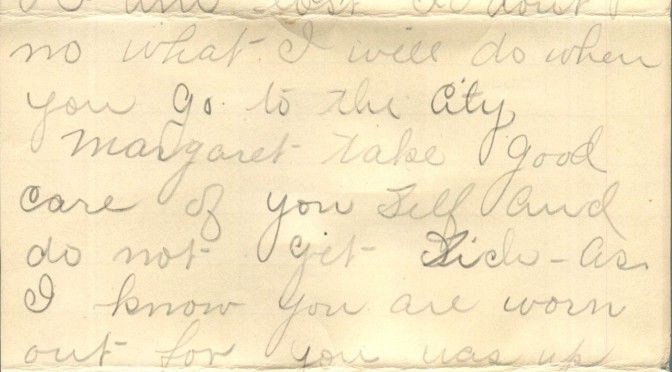 I am lost I don't
no what I will do when
you go to the City
Margaret take good
care of you self and
do not get Sick - as
I know you are worn
out for you was up